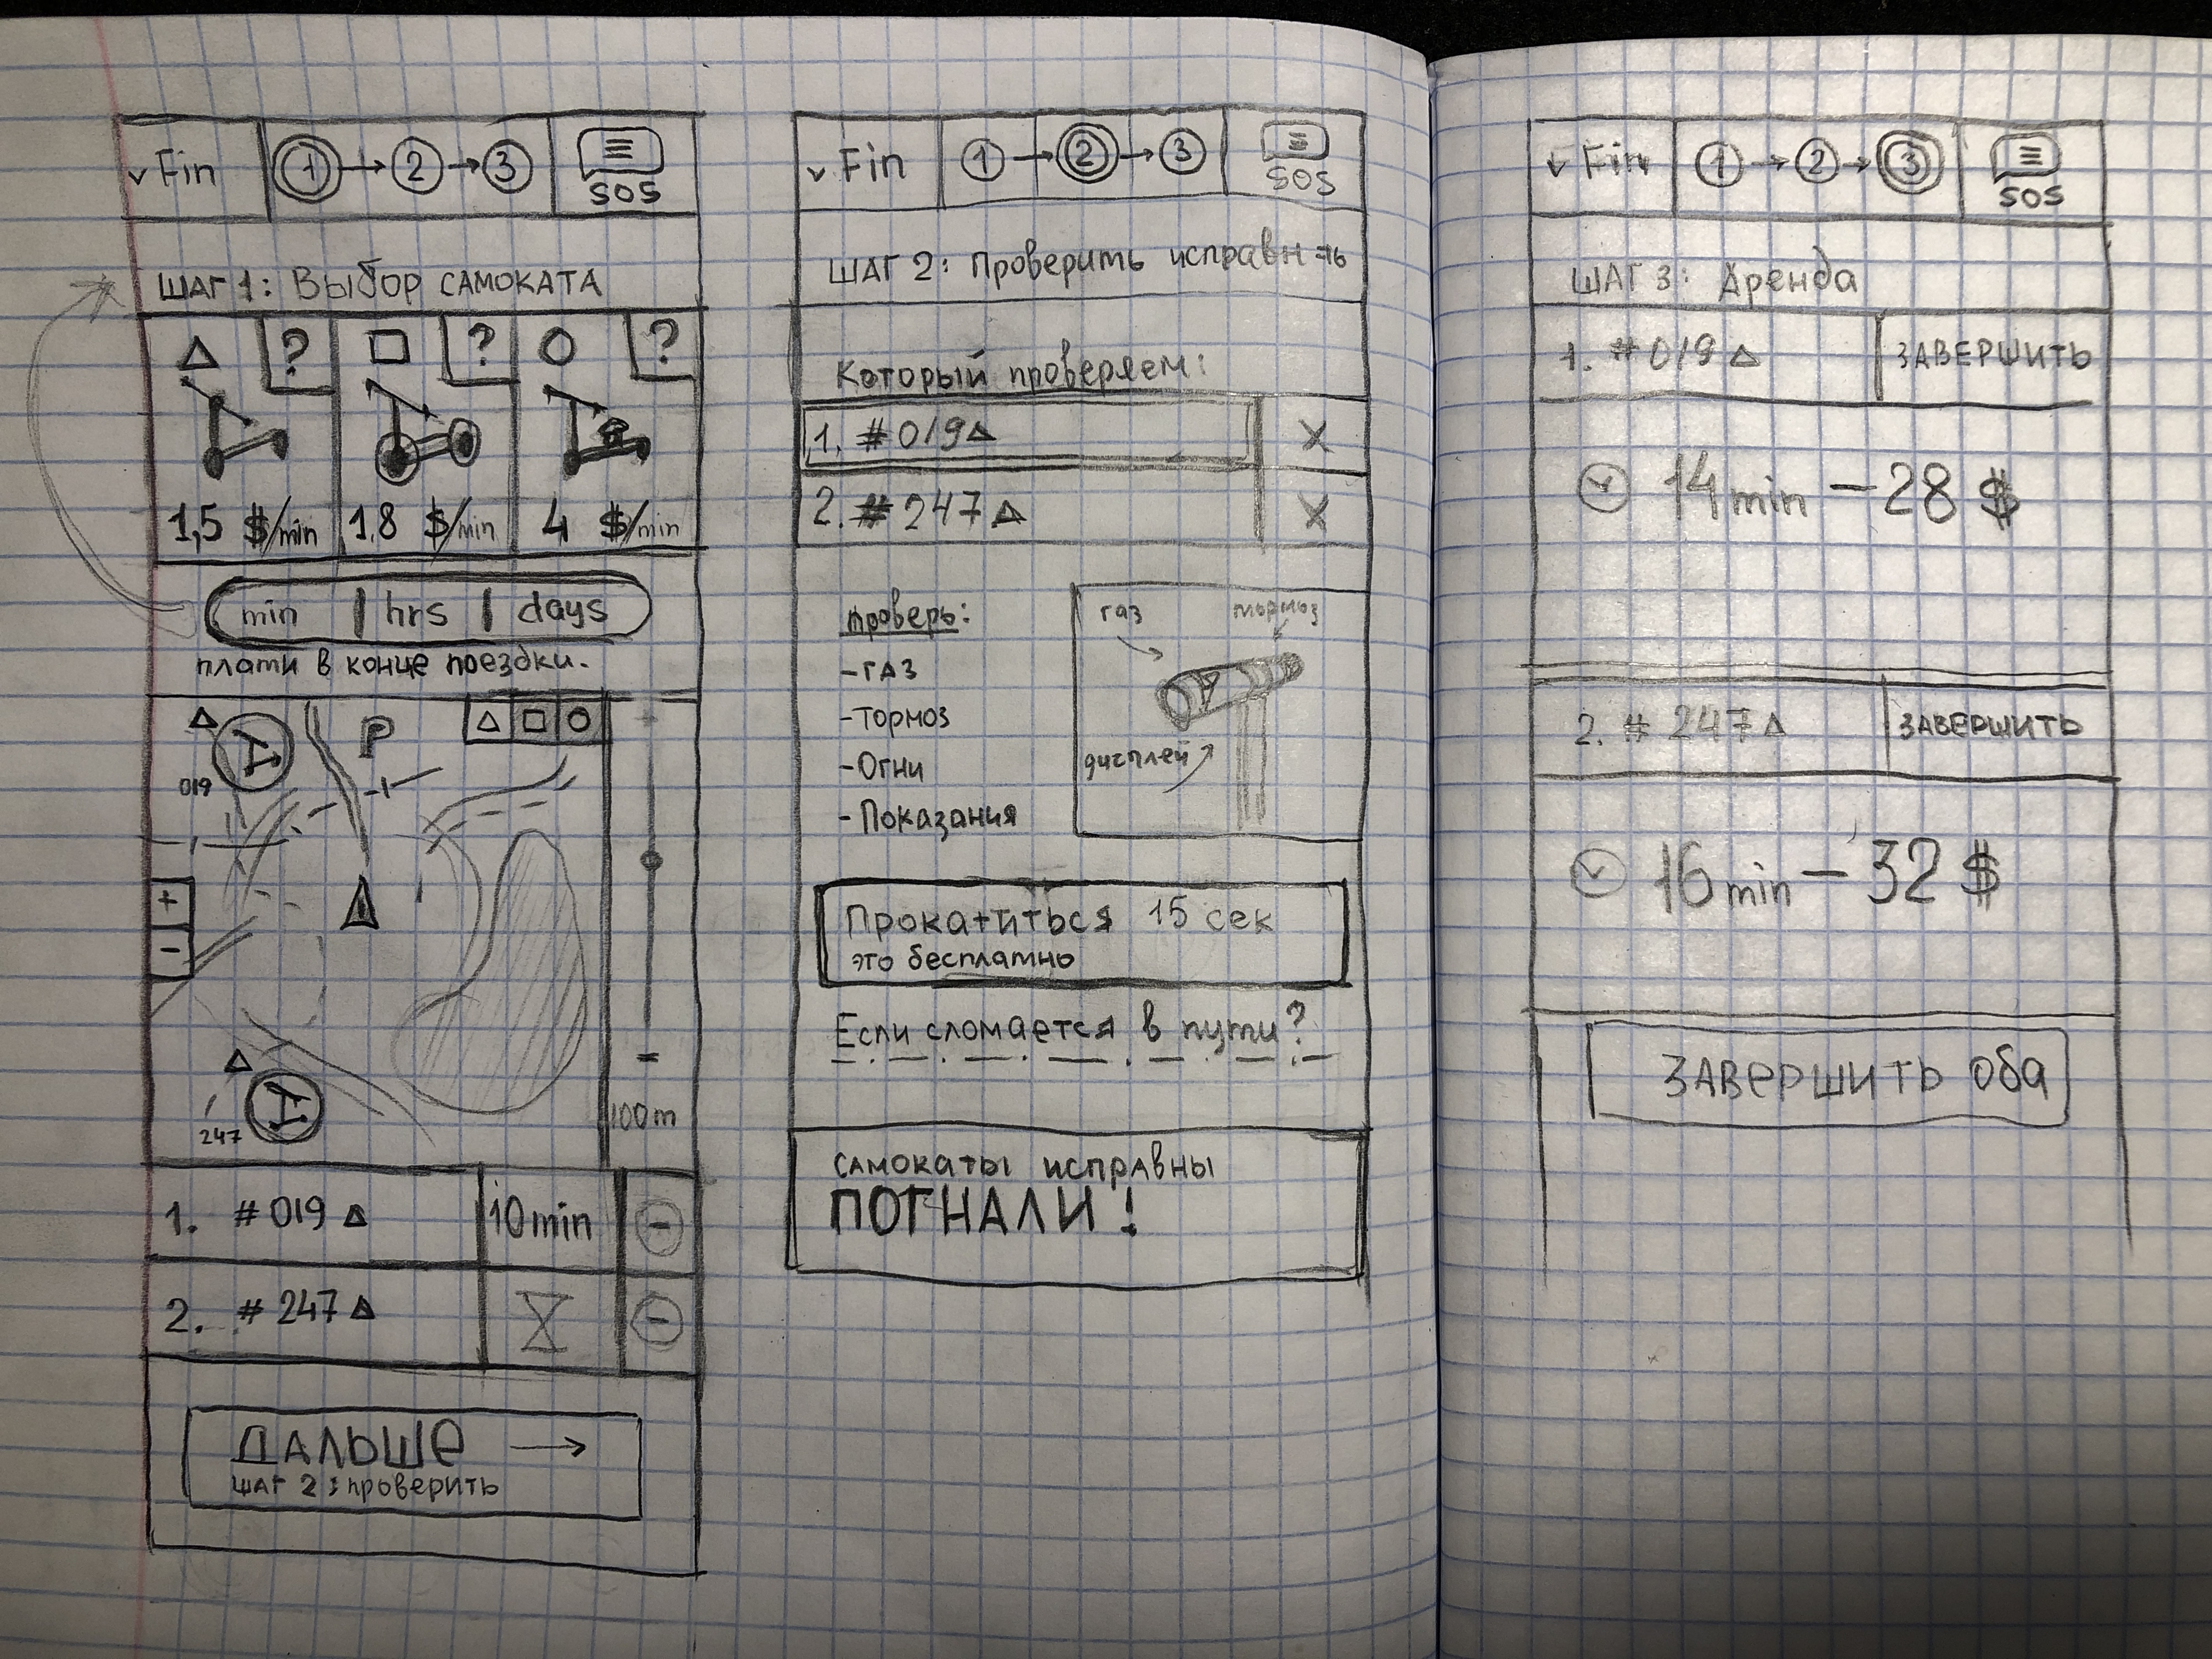 Fin 1 → 2 → 3 SOS
ШАГ 1: Выбор самоката
? ? ?
1,5 $/min 1,8 $/min 4 $/min
min | hrs | days
плати в конце поездки.
019 P
+
-
247
100 m
1. #019 10 min -
2. #247 -
ДАЛЬШЕ →
ШАГ 2: проверить
Fin 1 → 2 → 3 SOS
ШАГ 2: Проверить исправн-ть
Который проверяем:
1. #019 X
2. #247 X
Проверь:
- газ
- Тормоз
- Огни
- Показания
газ тормоз
дисплей
Прокатиться 15 сек
это бесплатно
Если сломается в пути?
самокаты исправны
ПОГНАЛИ!
Fin 1 → 2 → 3 SOS
ШАГ 3: Аренда
1. #019 ЗАВЕРШИТЬ
14 min — 28 $
2. #247 ЗАВЕРШИТЬ
16 min — 32 $
ЗАВЕРШИТЬ ОБА